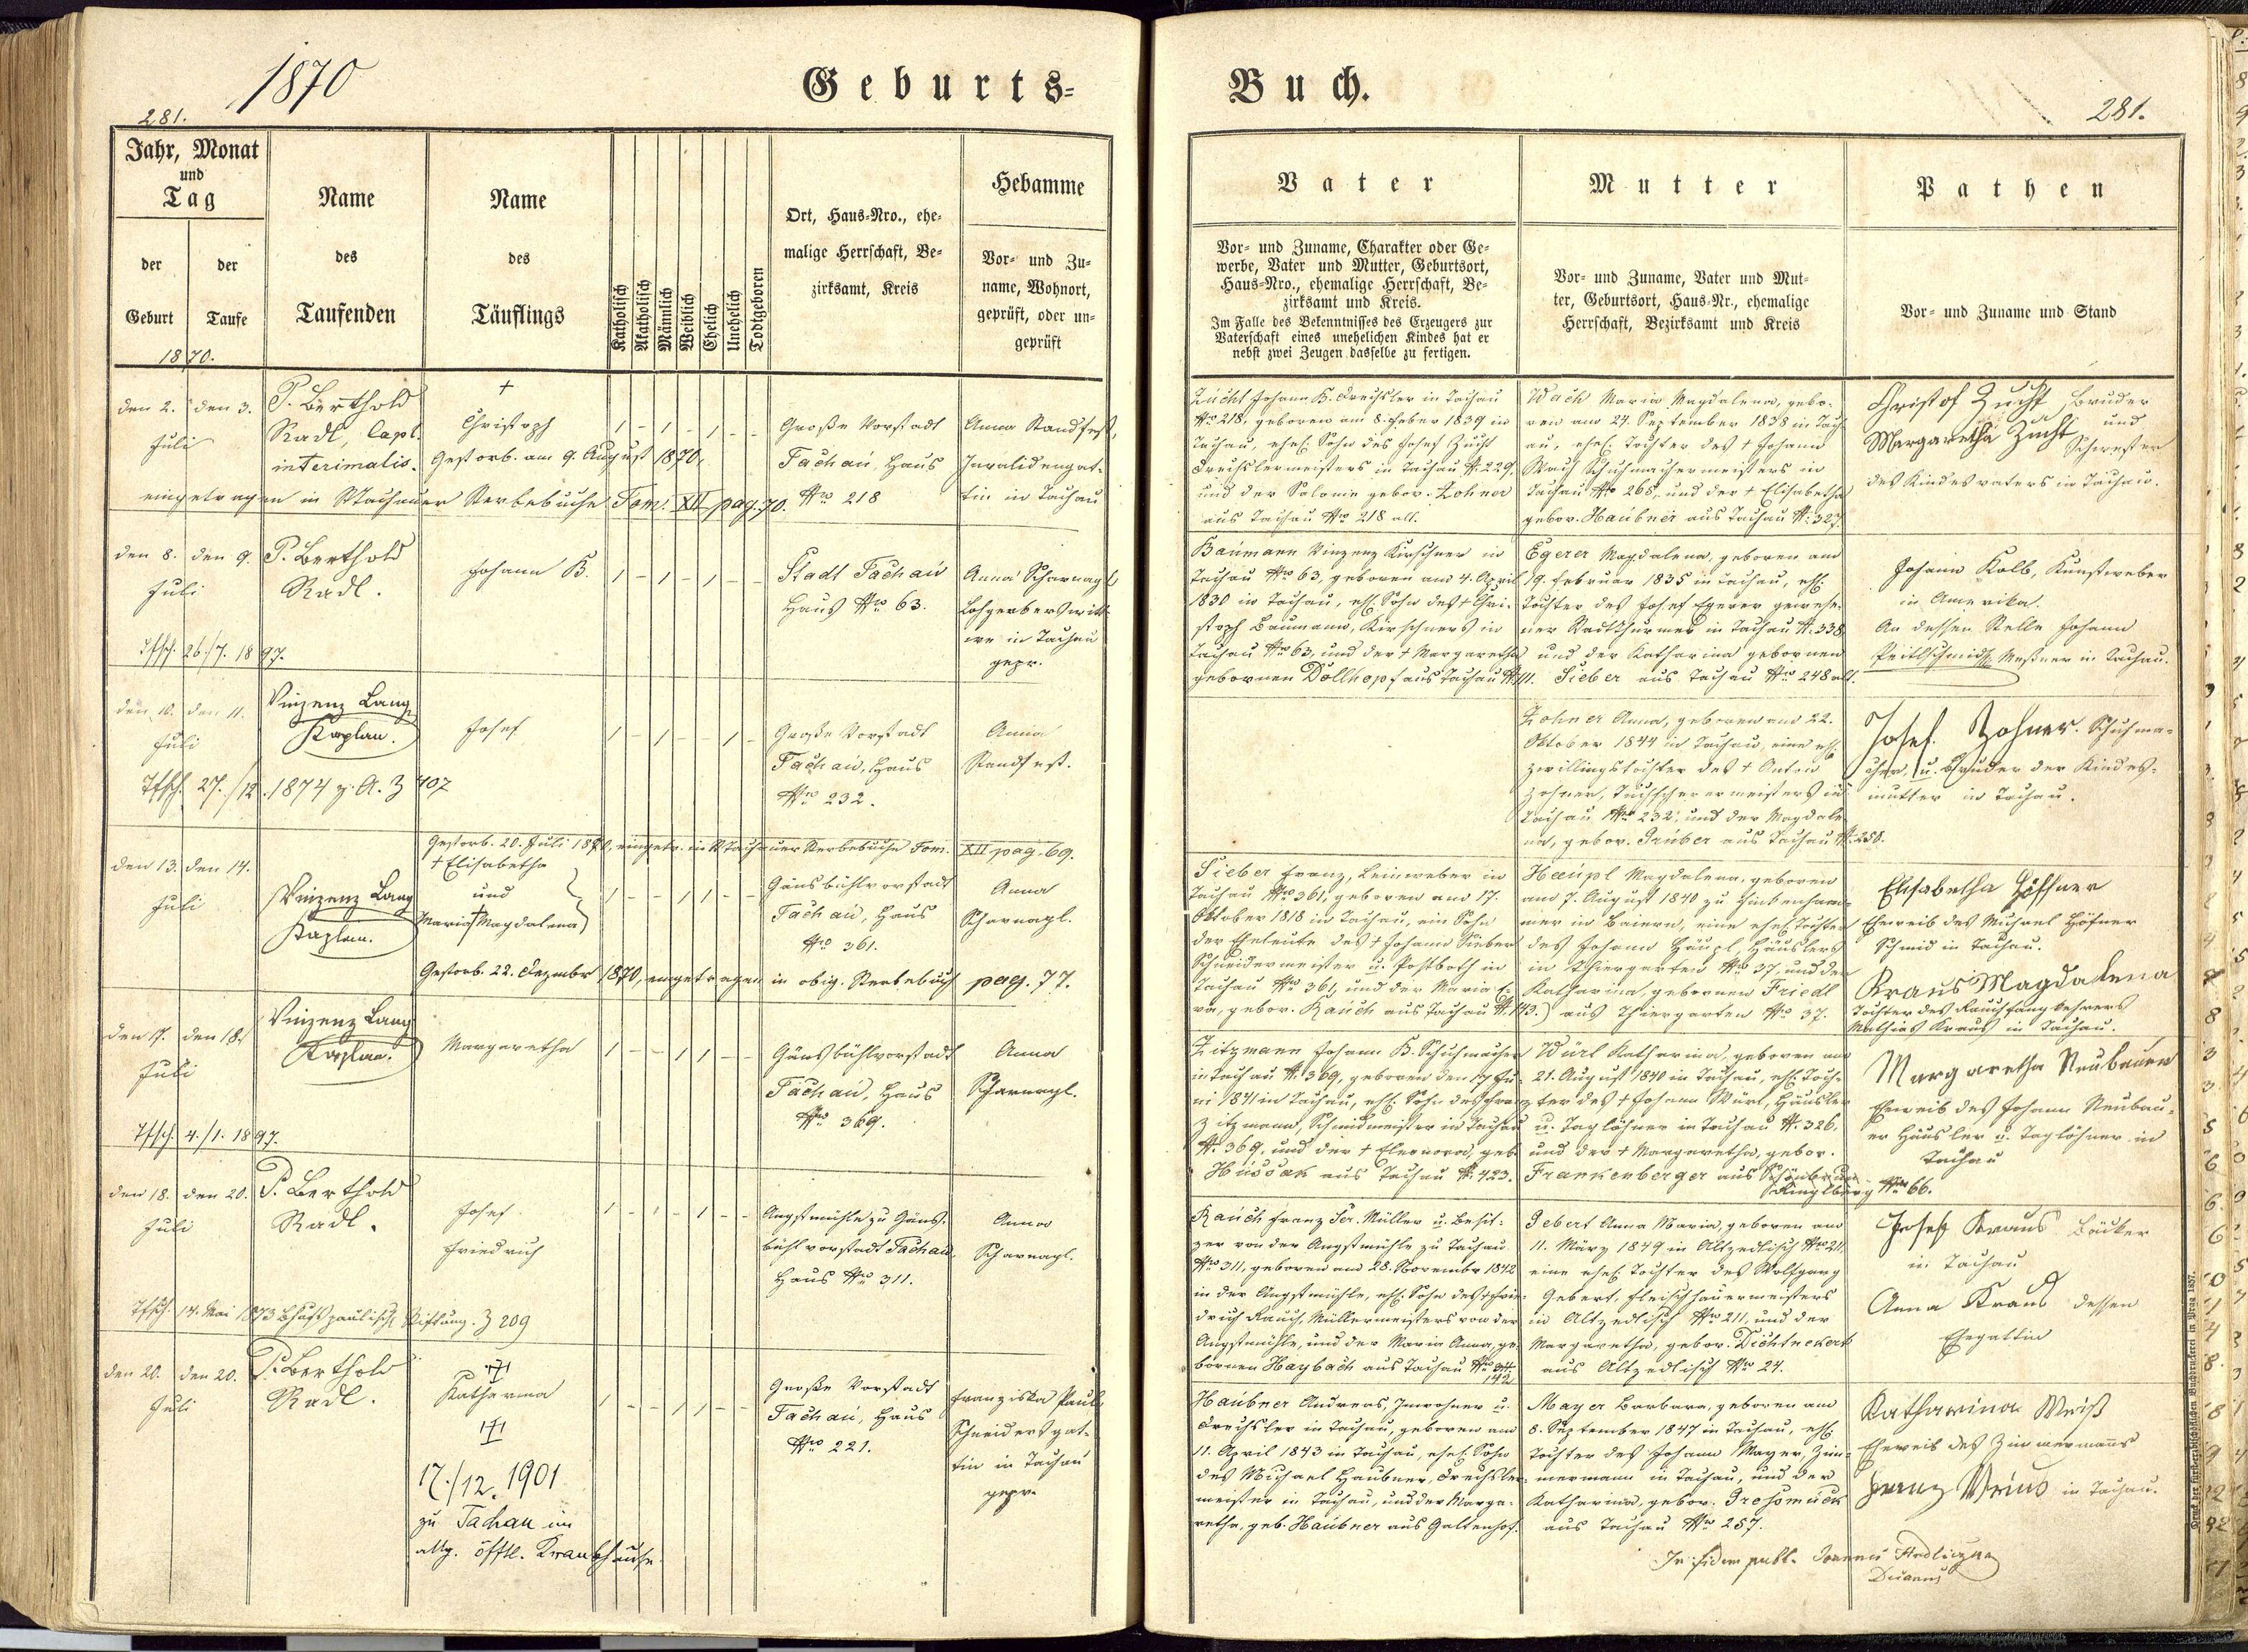 1870
Geburts-
281.
Jahr, Monat
und
Tag
der
Geburt
der
Taufe
1870.
Name
des
Taufenden
Name
des
Täuflings
Katholisch
Akatholisch
Männlich
Weiblich
Ehelich
Unehelich
Todtgeboren
Ort, Haus-Nro., ehe-
malige Herrschaft, Be-
zirksamt, Kreis
Hebamme
Vor- und Zu-
name, Wohnort,
geprüft, oder un-
geprüft
den 2. den 3.
Juli
P. Berthold
Radl, Capl.
interimalis.
+
Christoph
Gestorb. am 9. August 1870,
eingetragen in Tachauer Sterbebuche Tom. XII pag. 70.
1 - 1 - 1 - -
Große Vorstadt
Tachau, Haus
Nro 218
Anna Standfest,
Invalidengat-
tin in Tachau
den 8. den 9.
Juli
P. Berthold
Radl.
Johann B.
1 - 1 - 1 - -
Stadt Tachau
Haus Nro 63.
Anna Scharnagl
Lohgerberswitt-
we in Tachau
gepr.
Tfsch. 26./7. 1897.
den 10. den 11.
Juli
Vinzenz Lang
Kaplan.
Josef
1 - 1 - - 1 -
Große Vorstadt
Tachau, Haus
Nro 232.
Anna
Standfest.
Tfsch. 27./12. 1874 z. A. Z 407
Gestorb. 20. Juli 1870, eingetr. in Tachauer Sterbebuche Tom. XII pag. 69.
den 13. den 14.
Juli
Vinzenz Lang
Kaplan.
+ Elisabetha
und
Maria + Magdalena
1 - - 1 1 - -
Gänsbühlvorstadt
Tachau, Haus
Nro 361.
Anna
Scharnagl.
Gestorb. 22. Dezember 1870, eingetragen in obig. Sterbebuch pag. 77.
den 17. den 18.
Juli
Vinzenz Lang
Kaplan.
Margaretha
1 - - 1 1 - -
Gänsbühlvorstadt
Tachau, Haus
Nro 369.
Anna
Scharnagl.
Tfsch. 4./1. 1897.
den 18. den 20.
Juli
P. Berthold
Radl.
Josef
Friedrich
1 - 1 - 1 - -
Angstmühle zu Gäns-
bühlvorstadt Tachau
Haus Nro 311.
Anna
Scharnagl.
Tfsch. 14. Mai 1873 Stiftung. Z 209
den 20. den 20.
Juli
P. Berthold
Radl.
Katharina
17./12. 1901
zu Tachau im
allg. öfftl. Krankhause.
1 - - 1 1 - -
Große Vorstadt
Tachau, Haus
Nro 221.
Franziska Pauli
Schneidersgat-
tin in Tachau
gepr.
Buch.
281.
Vater
Vor- und Zuname, Charakter oder Ge-
werbe, Vater und Mutter, Geburtsort,
Haus-Nro., ehemalige Herrschaft, Be-
zirksamt und Kreis.
Im Falle des Bekenntnisses des Erzeugers zur
Vaterschaft eines unehelichen Kindes hat er
nebst zwei Zeugen dasselbe zu fertigen.
Mutter
Vor- und Zuname, Vater und Mut-
ter, Geburtsort, Haus-Nr., ehemalige
Herrschaft, Bezirksamt und Kreis
Pathen
Vor- und Zuname und Stand
Zucht Johann B. Drechsler in Tachau
Nro 218, geboren am 8. Feber 1839 in
Tachau, ehel. Sohn des Josef Zucht
Drechslermeisters in Tachau N. 229,
und der Salome gebor. Zohner
aus Tachau Nro 218 all.
Wach Maria Magdalena, gebo-
ren am 24. September 1838 in Tach-
au, ehel. Tochter des + Johann
Wach Schuhmachermeisters in
Tachau Nro 265, und der + Elisabetha
gebor. Haubner aus Tachau N. 327.
Christof Zucht Bruder
und
Margaretha Zucht Schwester
des Kindesvaters in Tachau.
Baumann Vinzenz Kirschner in
Tachau Nro 63, geboren am 4. April
1830 in Tachau, ehl. Sohn des + Chri-
stoph Baumann, Kirschners in
Tachau Nro 63, und der + Margaretha
gebornen Dollhopf aus Tachau N. 111.
Egerer Magdalena, geboren am
19. Februar 1835 in Tachau, ehl.
Tochter des Josef Egerer gewese-
ner Stadtthurmer in Tachau N. 338
und der Katharina gebornen
Sieber aus Tachau Nro 248 all.
Johann Kolb, Kunstweber
in Amerika.
An dessen Stelle Johann
Peitlschmidt, Meßner in Tachau.
Zohner Anna, geboren am 22.
Oktober 1844 in Tachau, eine ehl.
Zwillingstochter des + Anton
Zohner, Tuchscherermeisters in
Tachau Nro 232, und der Magdale-
na, gebor. Gruber aus Tachau N. 258.
Josef Zohner. Schuhma-
cher, u. Bruder der Kindes-
mutter in Tachau.
Sieber Franz, Leinweber in
Tachau Nro 361, geboren am 17.
Oktober 1818 in Tachau, ein Sohn
der Eheleute des + Johann Sieber
Schneidermeister u. Postboth in
Tachau Nro 361, und der Maria E-
va, gebor. Rauch aus Tachau N. 143.
Haeupl Magdalena, geboren
am 7. August 1840 zu
mer in Baiern, eine ehel. Tochter
des Johann Häupl Häuslers
in Thiergarten Nro 37, und der
Katharina, gebornen Friedl
aus Thiergarten Nro 37.
Elisabetha Höffner
Eheweib des Michael Höfner
Schmid in Tachau.
Kraus Magdalena
Tochter des Rauchfangkehrers
Mathias Kraus in Tachau.
Zitzmann Johann B. Schuhmacher
in Tachau N. 369, geboren den 17. Ju-
ni 1841 in Tachau, ehl. Sohn des Franz
Zitzmann, Schmidmeister in Tachau
N. 369, und der + Eleonora, geb.
Hussak aus Tachau N. 423.
Würl Katharina, geboren am
21. August 1840 in Tachau, ehl. Toch-
ter des + Johann Würl, Häusler
u. Taglöhner in Tachau N. 326,
und der + Margaretha, gebor.
Frankenberger aus Schönbrunn
Nro 66.
Margaretha Neubauer
Eheweib des Johann Neubau-
er Häusler u. Taglöhner in
Tachau
Rauch Franz Ser. Müller u. Besit-
zer von der Angstmühle zu Tachau
Nro 311, geboren am 28. November 1842
in der Angstmühle, ehl. Sohn des Frie-
drich Rauch, Müllermeisters von der
Angstmühle, und der Maria Anna, ge-
bornen Haybach aus Tachau Nro
142
Gebert Anna Maria, geboren am
11. März 1849 in Altzedlisch Nro 211,
eine ehel. Tochter des Wolfgang
Gebert, Fleischhauermeisters
in Altzedlisch Nro 211, und der
Margaretha, gebor. Dichtneckert
aus Altzedlisch Nro 24.
Josef Kraus Bäcker
in Tachau
Anna Kraus dessen
Ehegattin
Haubner Andreas, Inwohner u.
Drechsler in Tachau, geboren am
11. April 1843 in Tachau, ehel. Sohn
des Michael Haubner, Drechsler-
meister in Tachau, und der Marga-
retha, geb. Haubner aus Galtenhof.
Mayer Barbara, geboren am
8. September 1847 in Tachau, ehl.
Tochter des Johann Mayer, Zim-
mermann in Tachau, und der
Katharina, gebor. Groshmuck
aus Tachau Nro 257.
Katharina Weiß
Eheweib des Zimmermanns
Franz Weiss in Tachau.
In fidem publ. Joannes Hrdliczka
Decanus
Druck der fürsterzbischöflichen Buchdruckerei in Prag 1857.